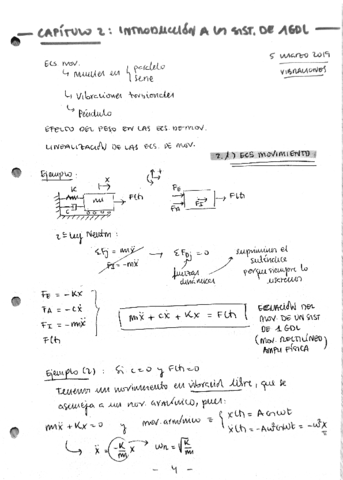 CAPÍTULO 2: INTRODUCCIÓN A UN SIST. DE 1GDL
5 MARZO 2019
VIBRACIONES
ECS MOV.
↳ Muelles en { paralelo
serie
↳ Vibraciones torsionales
↳ Péndulo
EFECTO DEL PESO EN LAS ECS DE MOV.
LINEALIZACIÓN DE LAS ECS. DE MOV.
2.1) ECS MOVIMIENTO:
Ejemplo:
x
K
m
F(t)
c
FE
FA
FI
F(t)
2ª Ley Newton:
ΣFj = mẍ
FI = -mẍ
→ ΣFDj = 0
fuerzas
dinámicas
suprimimos el
subíndice
porque siempre lo
FE = -Kx
FA = -cẋ
FI = -mẍ
F(t)
mẍ + cẋ + Kx = F(t)
ECUACIÓN DEL
MOV. DE UN SIST
DE 1GDL
(MOV. RECTILÍNEO)
Ejemplo (2): Si c=0 y F(t)=0
Tenemos un movimiento en vibración libre, que se
asemeja a un mov. armónico, pues:
mẍ + Kx = 0 y mov. armónico = { x(t) = A sen wt
ẍ(t) = -Aw² sen wt = -w²x
ẍ = -K/m x
wn = √K/m
- 4 -